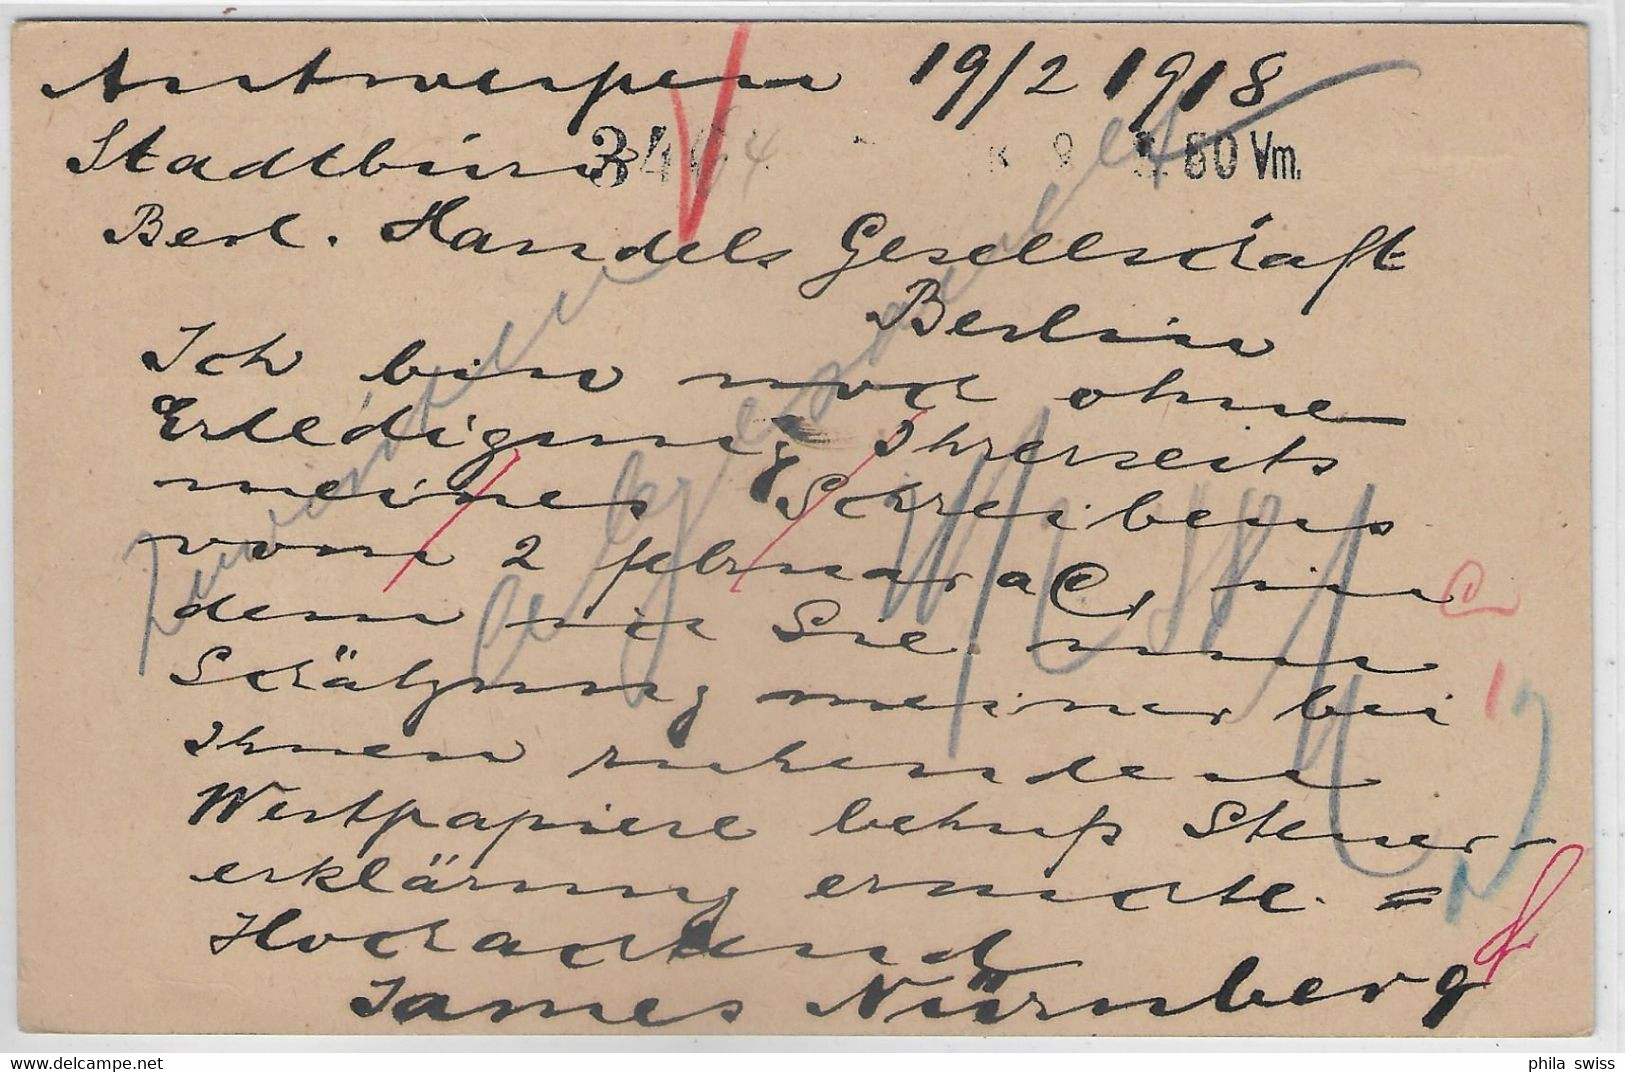 Antwerpen 19/2 1918
Stadtbüro 3464 50 Vm.
Berl. Handels Gesellschaft
Berlin
Ich bin noch ohne
Erledigung Ihrerseits
meines Schreibens
vom 2 februar a c, in
dem ich Sie um
Schätzung meiner bei
Ihnen ruhenden
Wertpapiere behufs Steuer-
erklärung ersuchte. =
Hochachtend
James Nürnberg
phila swiss